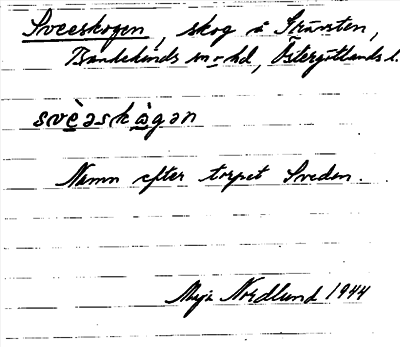 Sveeskogen, skog å Trävsten,
Tjandeduds sn o hd, Östergötlands l.
svèəskàgən
Namn efter torpet Sveden.
Maja Nordlund 1944